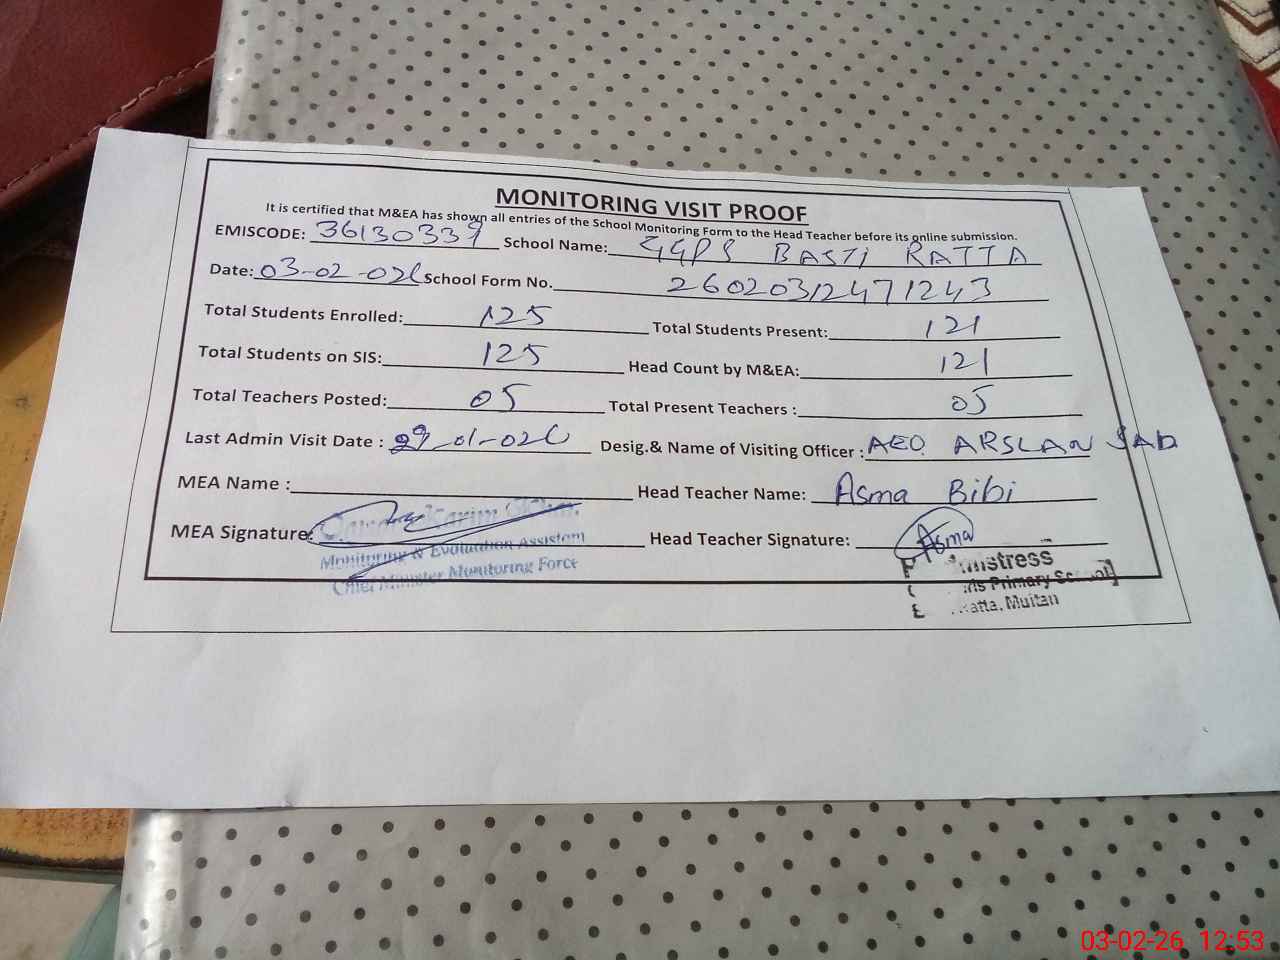 MONITORING VISIT PROOF
It is certified that M&EA has shown all entries of the School Monitoring Form to the Head Teacher before its online submission.
EMISCODE: 36130339 School Name: GGPS BASTI RATTA
Date: 03-02-026 School Form No. 26020312471243
Total Students Enrolled: 125 Total Students Present: 121
Total Students on SIS: 125 Head Count by M&EA: 121
Total Teachers Posted: 05 Total Present Teachers : 05
Last Admin Visit Date : 29-01-026 Desig.& Name of Visiting Officer : AEO. ARSLAN SAD
MEA Name : Head Teacher Name: Asma Bibi
MEA Signature: Karim Head Teacher Signature: Asma
Monitoring & Evaluation Assistant
Chief Minister Monitoring Force
Primary
Ratta, Multan
03-02-26 12:53